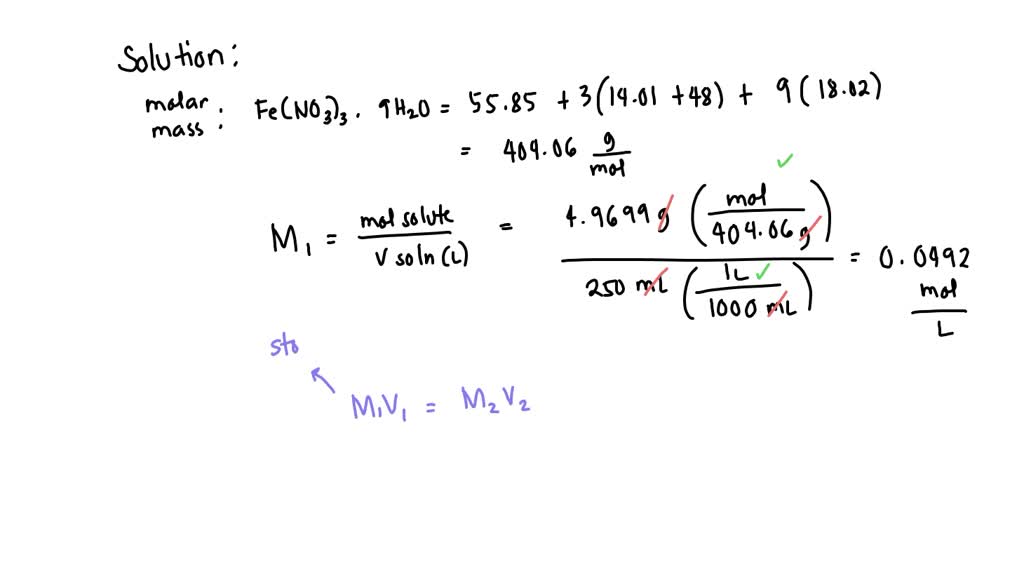 Solution:
molar mass : Fe(NO3)3 · 9H2O = 55.85 + 3(14.01 + 48) + 9(18.02)
= 404.06 g/mol
M1 = mol solute / V soln (L) = 4.9699 g (mol / 404.06 g) / 250 mL (1L / 1000 mL) = 0.0492 mol / L
sto
M1V1 = M2V2